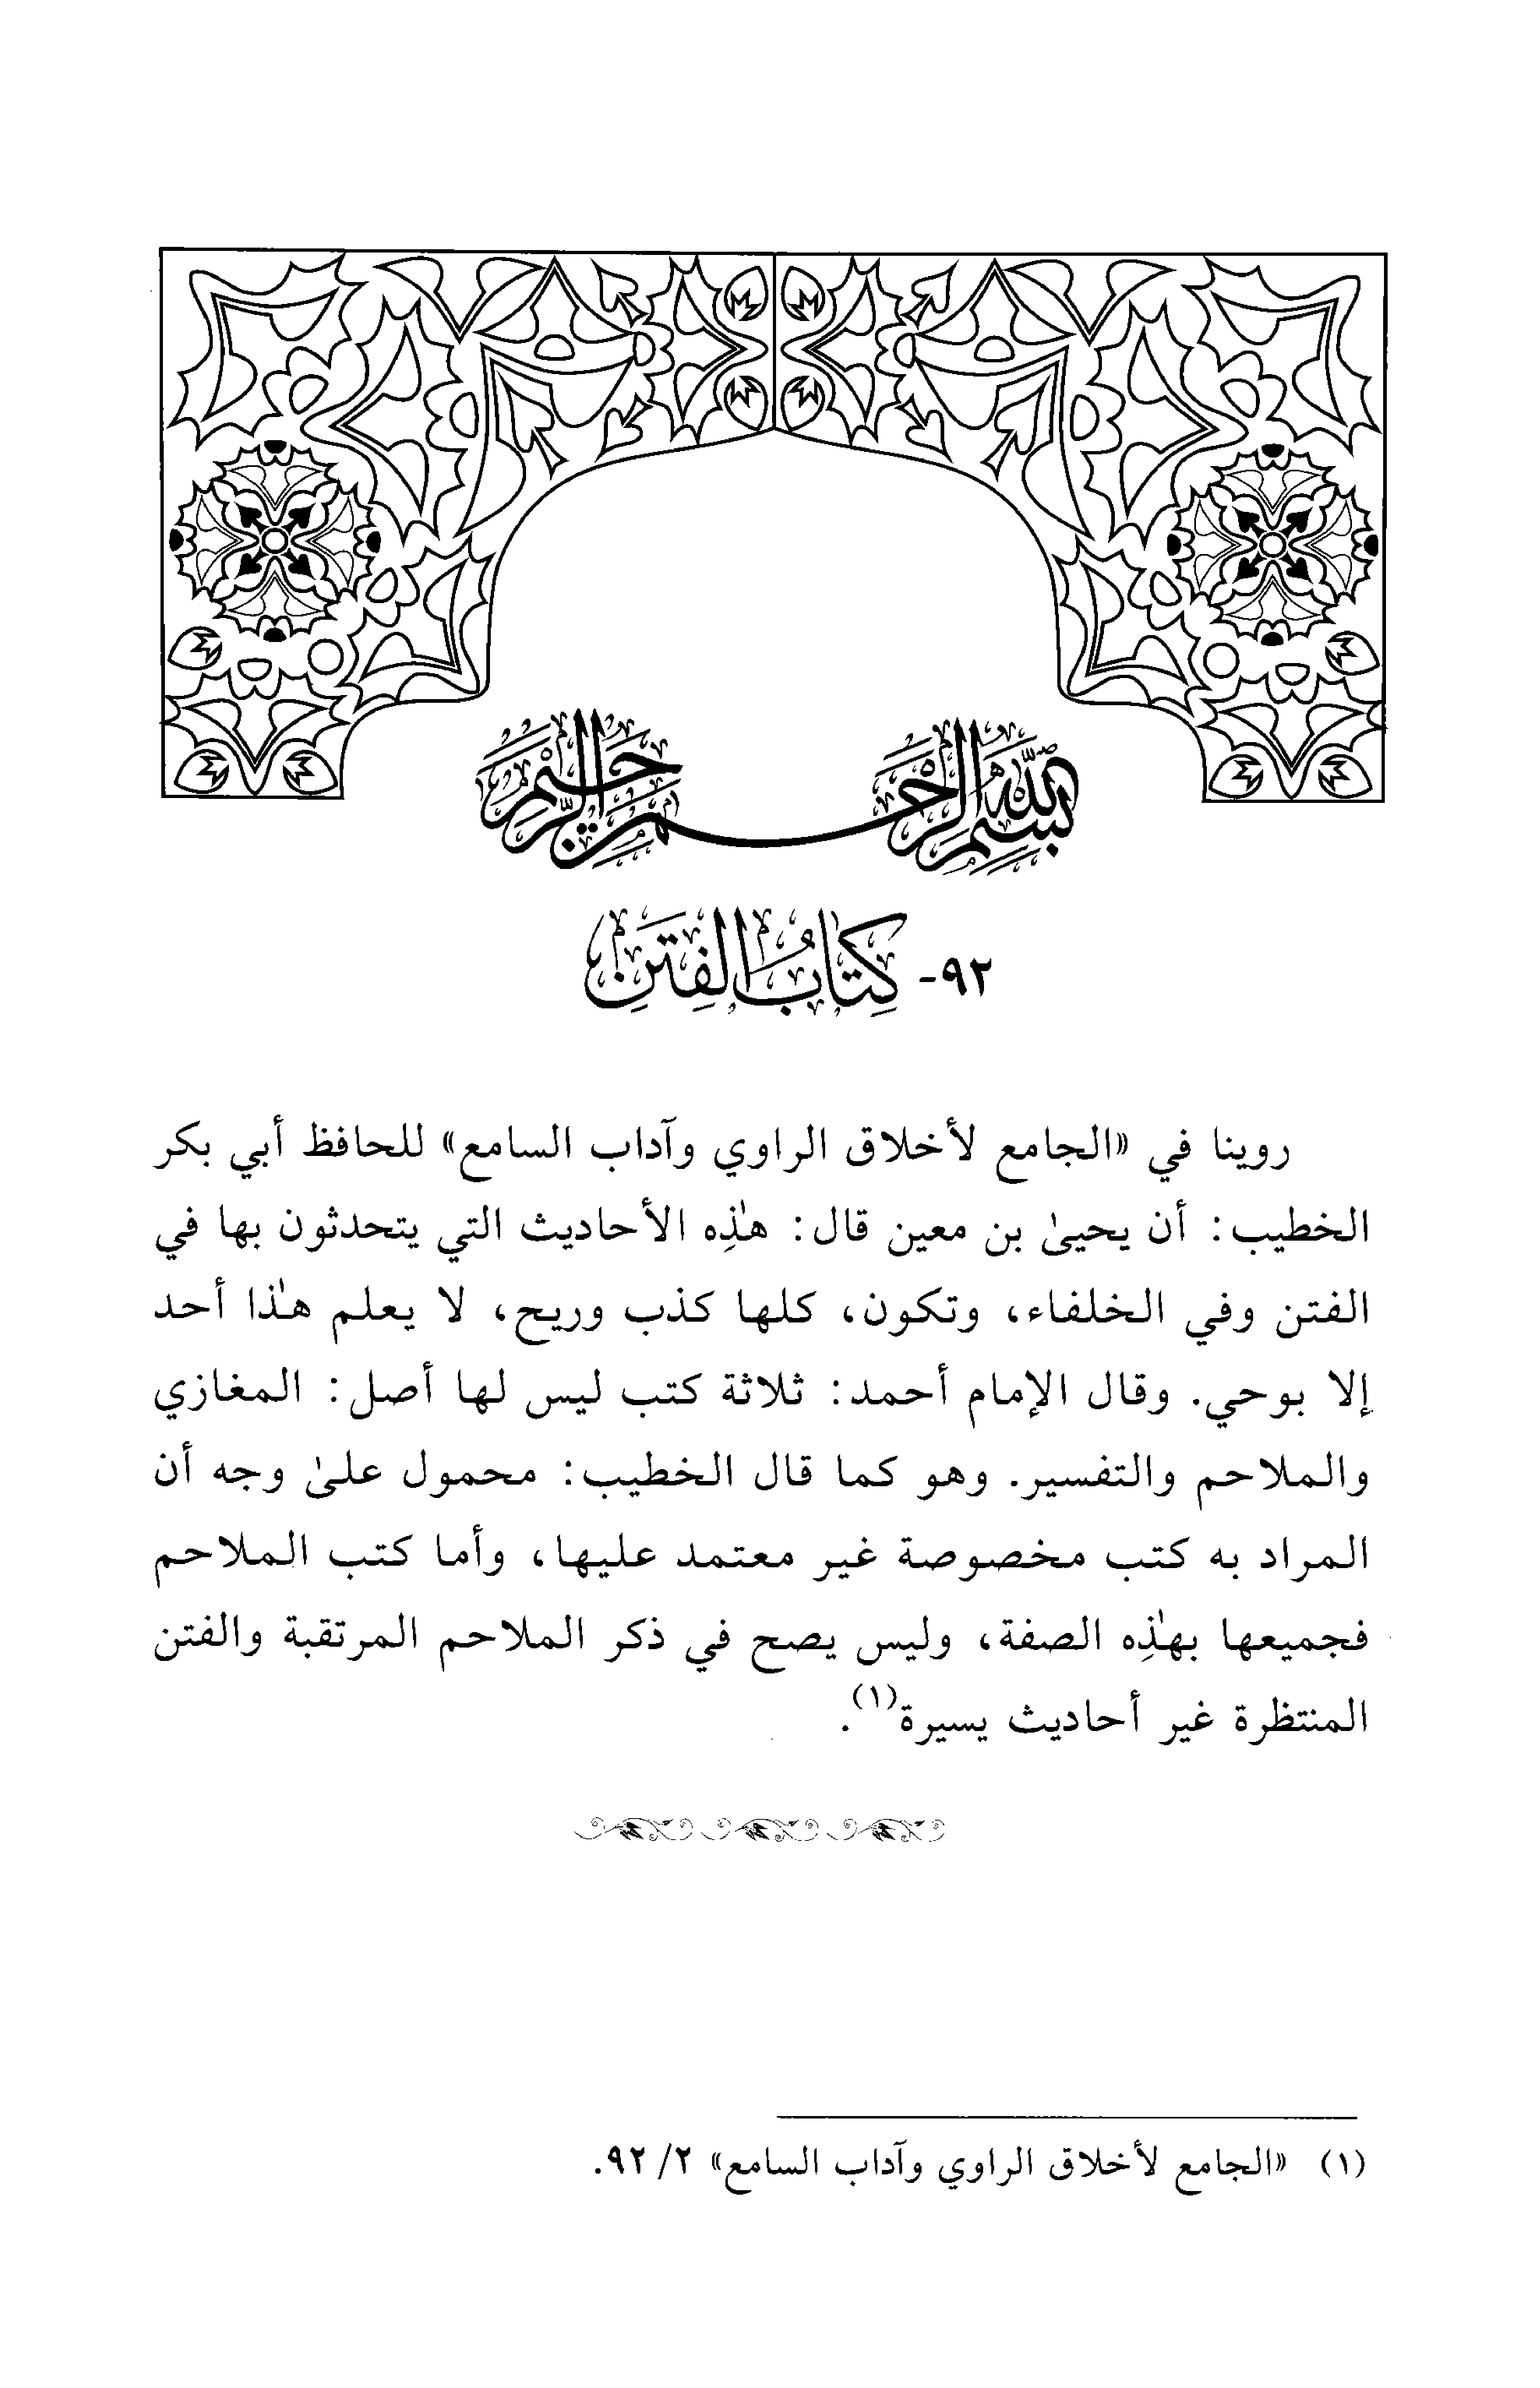 بسم الله الرحمن الرحيم
٩٢- كِتَابُ الفِتَنِ
روينا في «الجامع لأخلاق الراوي وآداب السامع» للحافظ أبي بكر
الخطيب: أن يحيىٰ بن معين قال: هذِه الأحاديث التي يتحدثون بها في
الفتن وفي الخلفاء، وتكون، كلها كذب وريح، لا يعلم هذا أحد
إلا بوحي. وقال الإمام أحمد: ثلاثة كتب ليس لها أصل: المغازي
والملاحم والتفسير. وهو كما قال الخطيب: محمول علىٰ وجه أن
المراد به كتب مخصوصة غير معتمد عليها، وأما كتب الملاحم
فجميعها بهذِه الصفة، وليس يصح في ذكر الملاحم المرتقبة والفتن
المنتظرة غير أحاديث يسيرة(١).
(١) «الجامع لأخلاق الراوي وآداب السامع» ٢/ ٩٢.